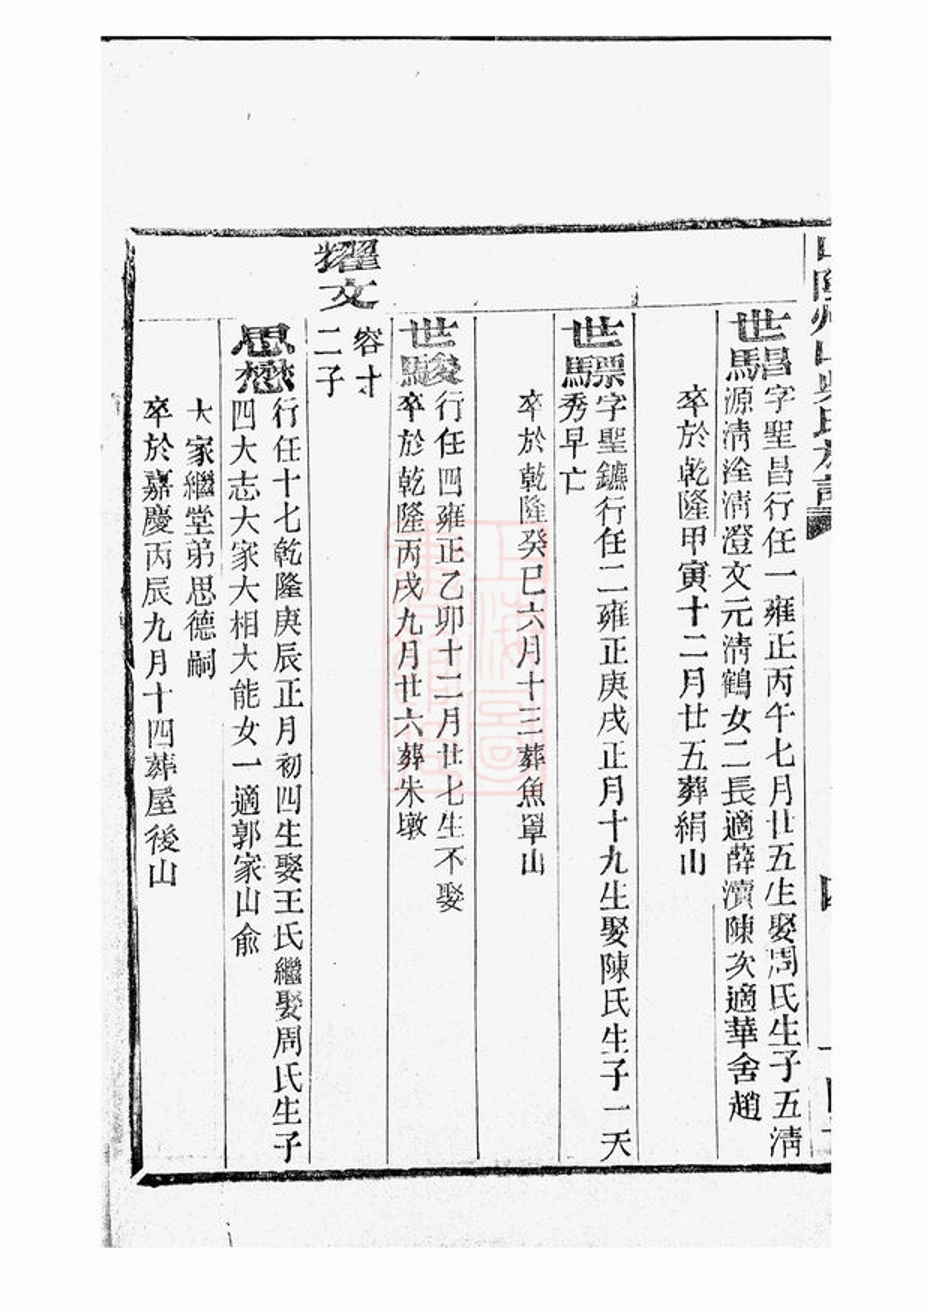 山陰州山吳氏族譜
世昌馬
字聖昌行任一雍正丙午七月廿五生娶周氏生子五淸
源淸淦淸澄文元淸鶴女二長適薛瀆陳次適華舍趙
卒於乾隆甲寅十二月廿五葬絹山
世驃
字聖鑣行任二雍正庚戌正月十九生娶陳氏生子一天
秀早亡
卒於乾隆癸巳六月十三葬魚罩山
世駿
行任四雍正乙卯十二月廿七生不娶
卒於乾隆丙戌九月廿六葬朱墩
耀文
容寸
二子
思懋
行任十七乾隆庚辰正月初四生娶王氏繼娶周氏生子
四大志大家大相大能女一適郭家山俞
大家繼堂弟思德嗣
卒於嘉慶丙辰九月十四葬屋後山